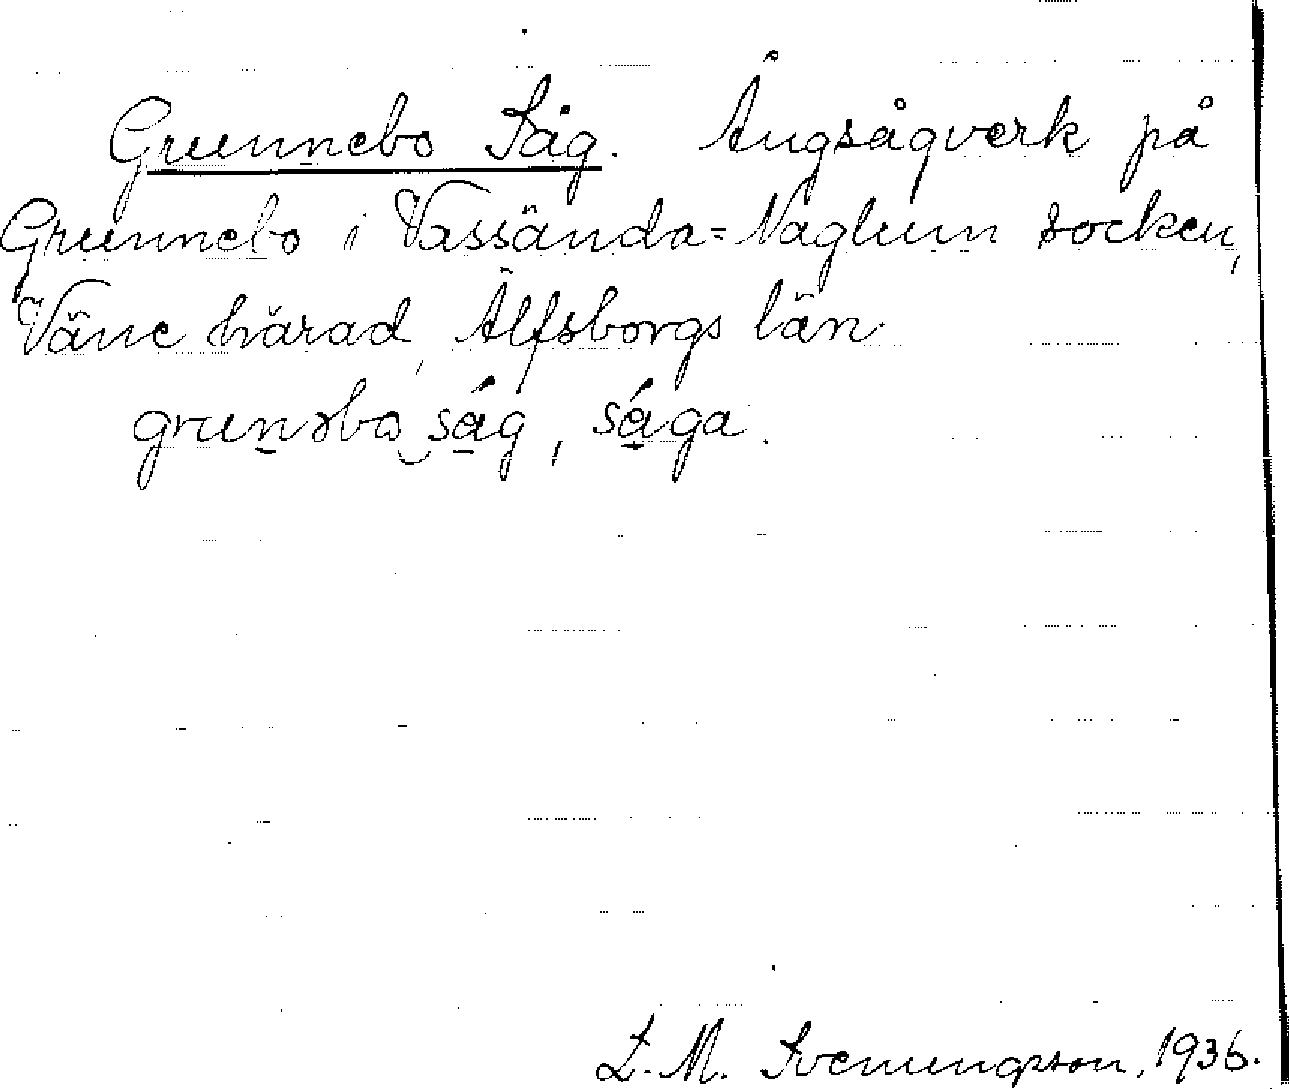 Grunnebo Såg. Ångsågverk på
Grunnebo i Vassända=Naglum socken,
Väne härad, Älfsborgs län
grunəbo ság, sága.
L. M. Svenungsson, 1936.